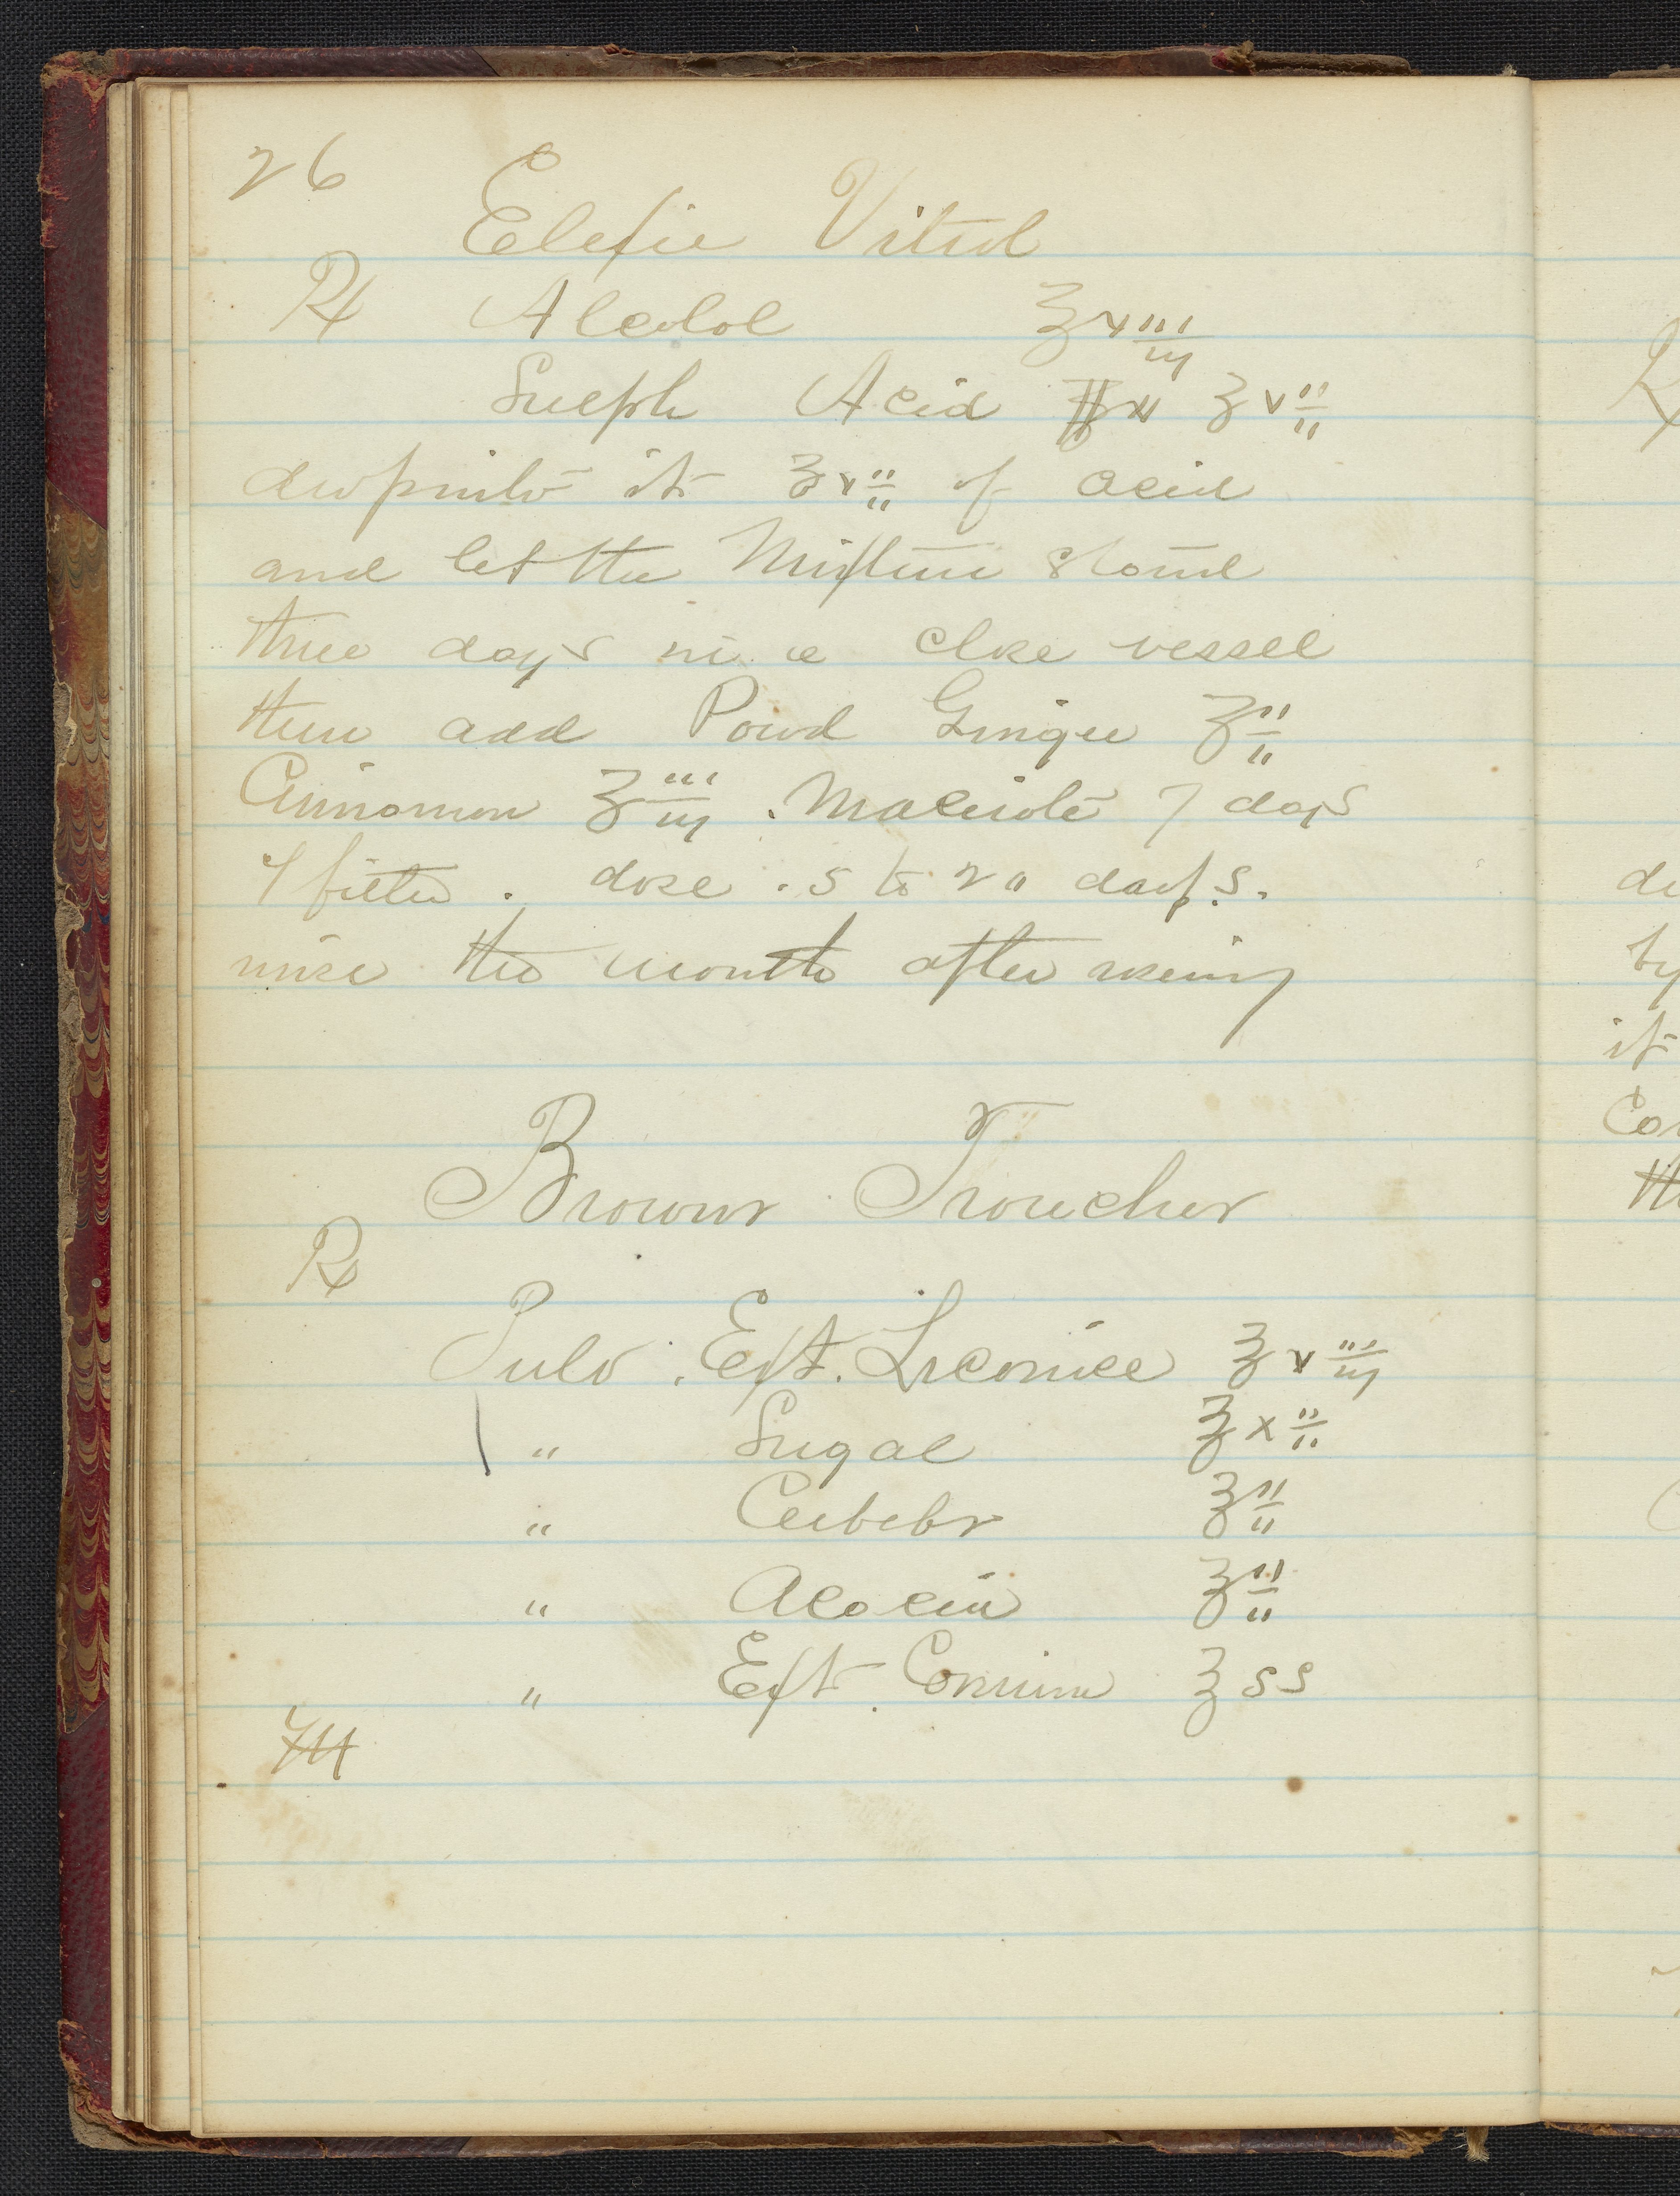 26
Elixir Vitrol
Rx Alcohol ℥ xviii
Sulph Acid ℥ vii
drop into it ℥ vii of acid
and let the Mixture stand
three days in a close vessel
then add Powd Ginger ℥ ii
Cinnamon ℥ iii . Macerate 7 days
& filter . dose . 5 to 20 drops.
rinse the mouth after using
Browns Trouches
Rx
Pulv . Ext. Licorice ℥ viii
" Sugar ℥ xii
" Cubebs ℥ ii
" Acacia ℥ ii
" Ext. Conium ℥ ss
M
R
by
it